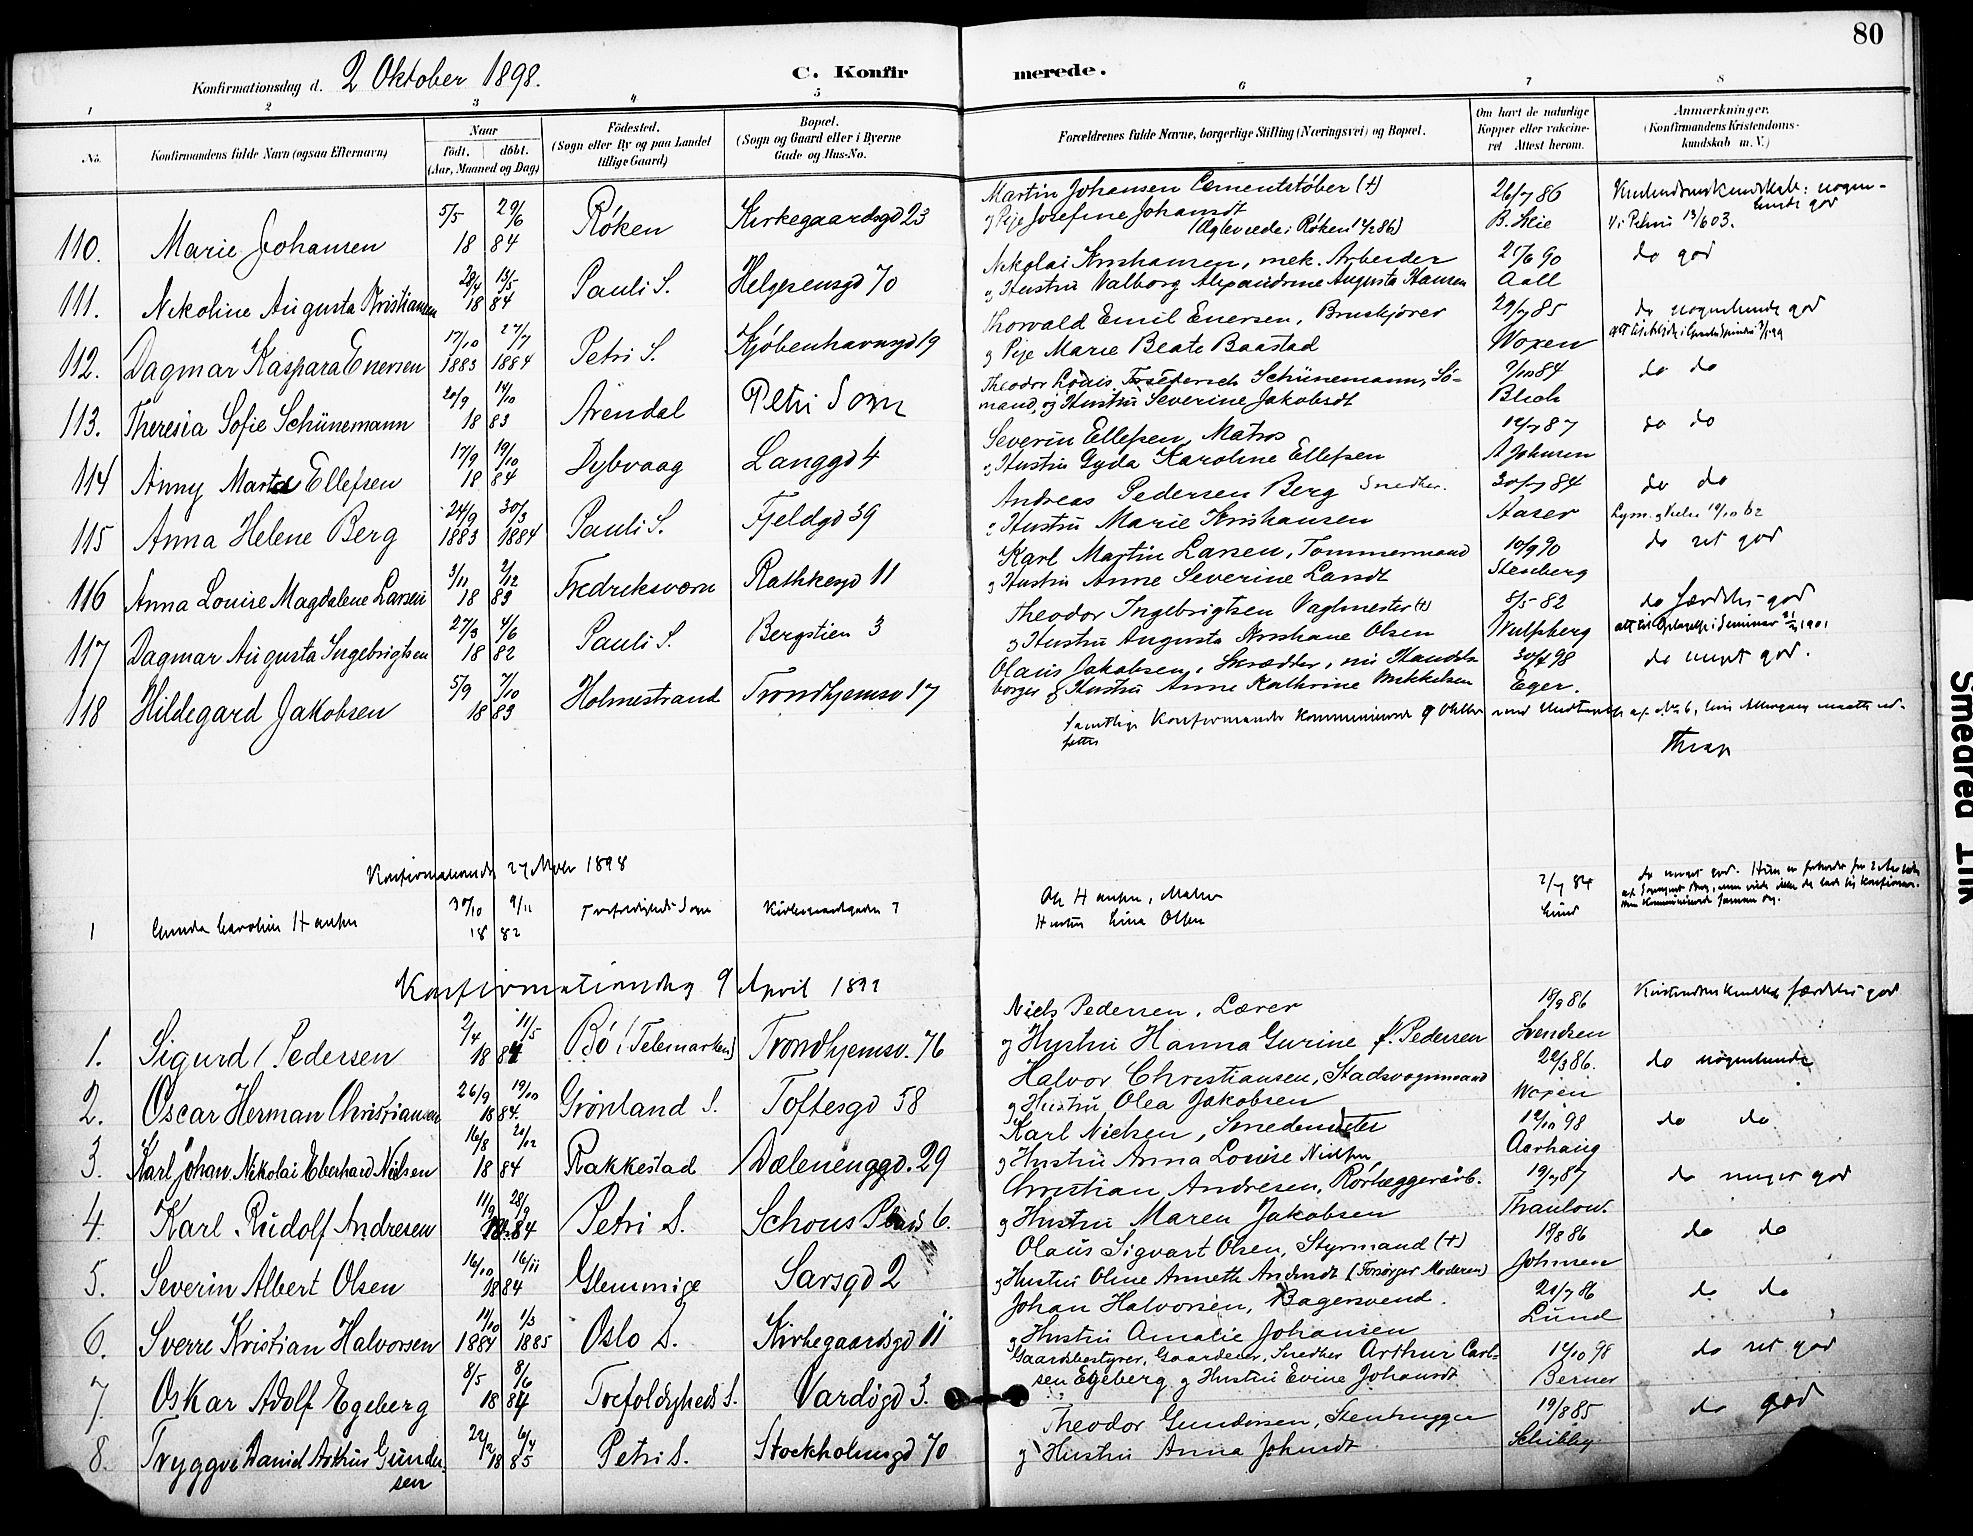 80
Konfirmationsdag d. 2 Oktober 1898.
C. Konfirmerede.
1 2 3 4 5 6 7 8
No.
Konfirmandens fulde Navn (ogsaa Efternavn)
Naar
födt. döbt.
(Aar, Maaned og Dag)
Födested.
(Sogn eller By og paa Landet
tillige Gaard)
Bopæl.
(Sogn og Gaard eller i Byerne
Gade og Hus-No.
Forældrenes fulde Navne, borgerlige Stilling (Næringsvei) og Bopæl.
Om havt de naturlige
Kopper eller vakcine-
ret Attest herom.
Anmærkninger.
(Konfirmandens Kristendoms-
kundskab m. V.)
110. Marie Johansen 5/5 29/6 18 84 Røken Kirkegaardsgd 23
Martin Johansen Cementstøber (†)
og Pige Josefine Johansdt
(Ægteviede i Røken 14/2 86)
26/7 86
B. Lie
111. Nikoline Augusta Kristiansen 28/4 13/5 18 84 Pauli S. Helgesensgd 70
Nikolai Kristiansen, mek. Arbeider
og Hustru Valborg Alexandrine Augusta Hansen
25/6 90
Aall
do god
112. Dagmar Kaspara Enersen 17/10 1883 27/7 1884 Petri S. Kjøbenhavnsgd 19
Thorvald Emil Enersen, Bruskjører
og Pige Marie Beate Baastad
29/7 85
Woxen
do nogenlunde god
113. Theresia Sofie Schünemann 20/9 14/10 18 83 Arendal Petri Sogn
Theodor Louis Frederich Schünemann, Sø-
mand, og Hustru Severine Jakobsdt
9/10 84
Blich
do do
114 Anny Marta Ellefsen 17/9 19/10 18 84 Dybvaag Langgd 4
Severin Ellefsen, Matros
og Hustru Gyda Karoline Ellefsen
14/7 87
A Johnsen
do do
115 Anna Helene Berg 24/9 1883 30/3 1884 Pauli S. Fjeldgd 39
Andreas Pedersen Berg Snedker.
og Hustru Marie Kristiansen
30/7 84
Aaser
do do
116 Anna Louise Magdalene Larsen 3/11 2/12 18 83 Fredriksværn Rathkesgd 11
Karl Martin Larsen, Tømmermand
og Hustru Anne Severine Landt
10/9 90
Stenberg
do ret god
117 Dagmar Augusta Ingebrigtsen 27/3 4/6 18 82 Pauli S. Bergstien 3
Theodor Ingebrigtsen Vagtmester (†)
og Hustru Augusta Kristiane Olsen
8/5 82
Wulfsberg
do særdeles god
118 Hildegard Jakobsen 5/9 7/10 18 83 Holmestrand Trondhjemsv 17
Olaus Jakobsen, Skrædder, nu Handels-
borger og Hustru Anne Kathrine Mikkelsen
30/4 98
Eger.
do meget god.
Samtlige Konfirmander kommunicerede 9 Oktbr med Undtagelse af No 6,
Konfirmationsd. 27 Novbr 1898
1 Gunda Caroline Hansen 30/10 9/11 18 82 Trefoldigheds Sogn
Ole Hansen, Maler
Hustru Lina Olsen
2/7 84
Lund
do meget god.
Konfirmationsdag 9 April 1899
1. Sigurd Pedersen 2/4 11/5 18 84 Bø (Telemarken) Trondhjemsv. 76
Niels Pedersen, Lærer
og Hustru Hanna Gurine f. Pedersen
18/9 86
Svendsen
Kristendomskundskab særdeles god
2. Oscar Herman Christiansen 26/9 19/10 18 84. Grønland S. Toftesgd 58
Halvor Christiansen, Stadsvognmand
og Hustru Olea Jakobsen
22/3 86.
Woxen
do nogenlunde
3. Karl Johan Nikolai Eberhard Nielsen 16/8 26/12 18 84 Rakkestad Dælenenggd. 29
Karl Nielsen, Smedemester
og Hustru Anna Louise Nielsen
12/10 98
Aarhaug
do do
4. Karl Rudolf Andresen 11/9 28/9 84 Petri S. Schous Plads 6.
Christian Andresen, Rørlæggerarb.
og Hustru Maren Jakobsen
19/7 87
Thaulow.
do meget god
5. Severin Albert Olsen 16/10 16/11 18 84 Glemminge Sarsgd 2
Olaus Sigvart Olsen, Styrmand (†)
og Hustru Oline Annette Andersdt (Forsørger Moderen)
19/8 86
Johnsen
do do
6. Sverre Kristian Halvorsen 11/10 1884 1/3 1885 Oslo S. Kirkegaardsgd 11
Johan Halvorsen, Bagersvend.
og Hustru Amalie Johansen
21/7 86
Lund
do do
7. Oskar Adolf Egeberg 8/5 8/6 18 84 Trefoldigheds S. Vardøgd 3.
Gaardsbestyrer, Gaardeier, Snedker Arthur Carl-
sen Egeberg og Hustru Evine Johansdt
14/10 98
Berner
do ret god
8. Tryggve Daniel Arthur Gunder-
sen 22/2 6/4 18 85 Petri S. Stockholmsgd 70
Theodor Gundersen, Stenhugger
og Hustru Anna Johnsdt
19/8 85
Schibbye
do god
Smedred Ink